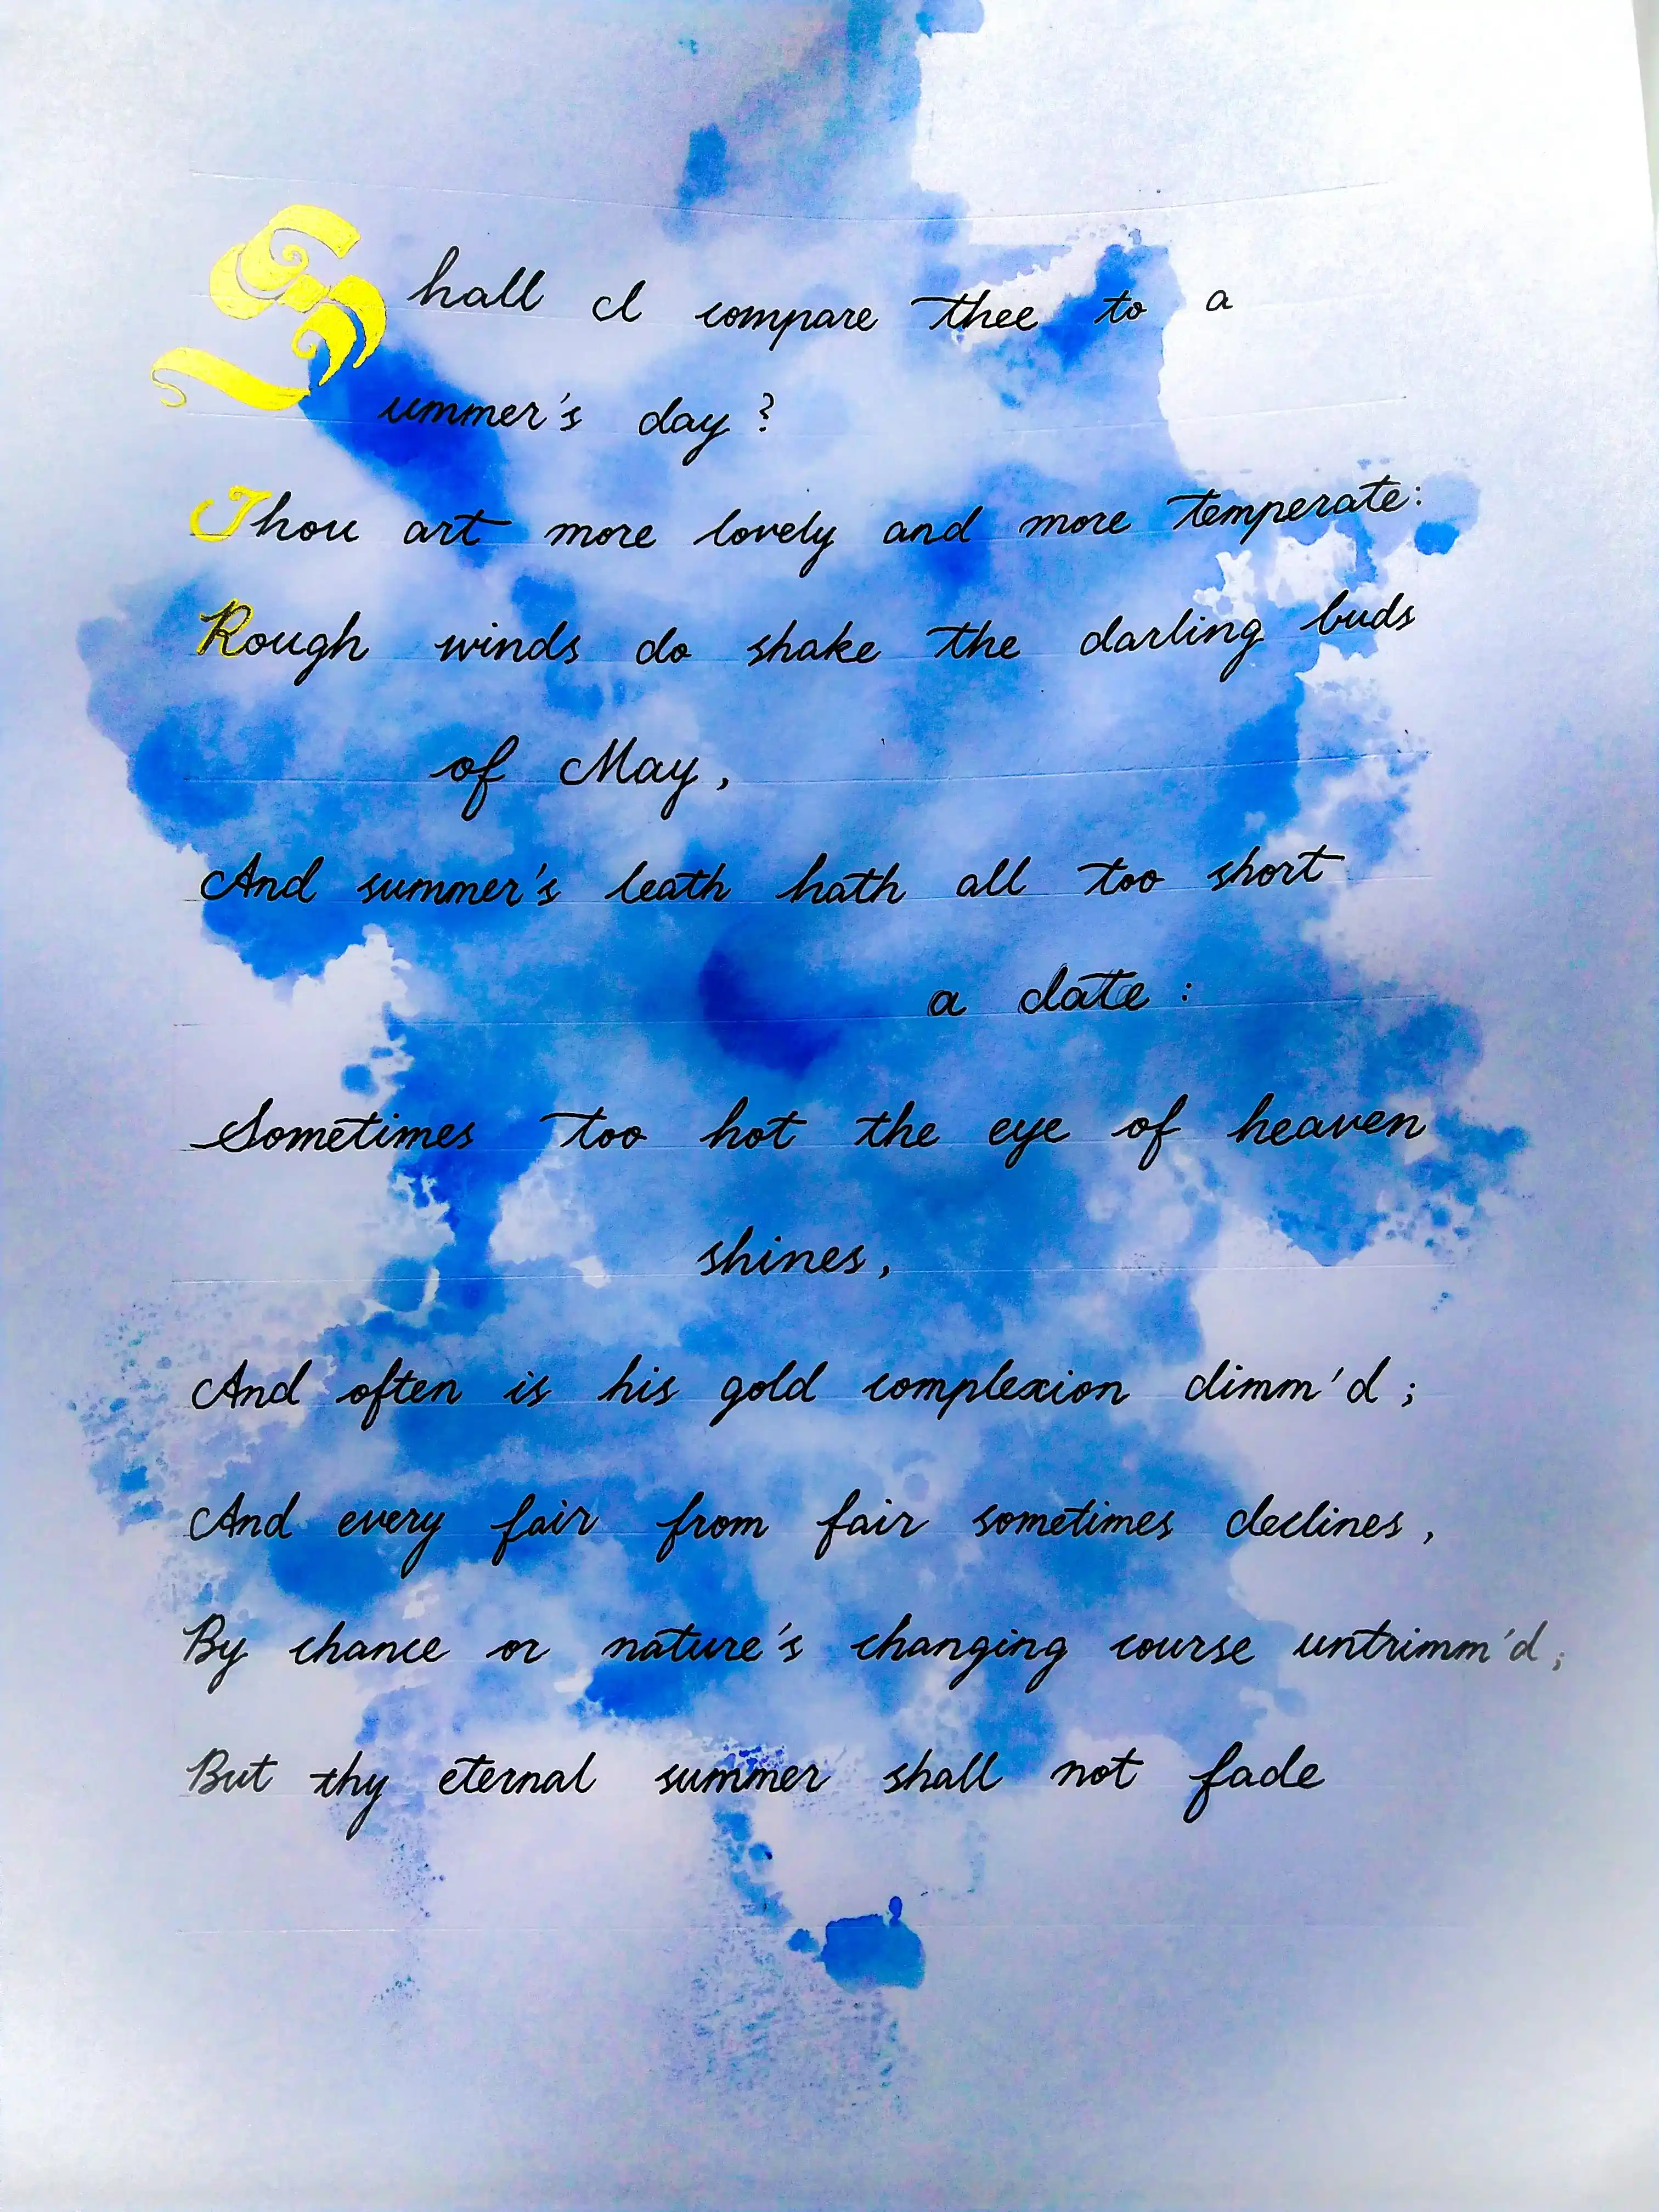 Shall I compare thee to a
ummer's day?
Thou art more lovely and more temperate:
Rough winds do shake the darling buds
of May,
And summer's leath hath all too short
a date:
Sometimes too hot the eye of heaven
shines,
And often is his gold complexion dimm'd;
And every fair from fair sometimes declines,
By chance or nature's changing course untrimm'd;
But thy eternal summer shall not fade